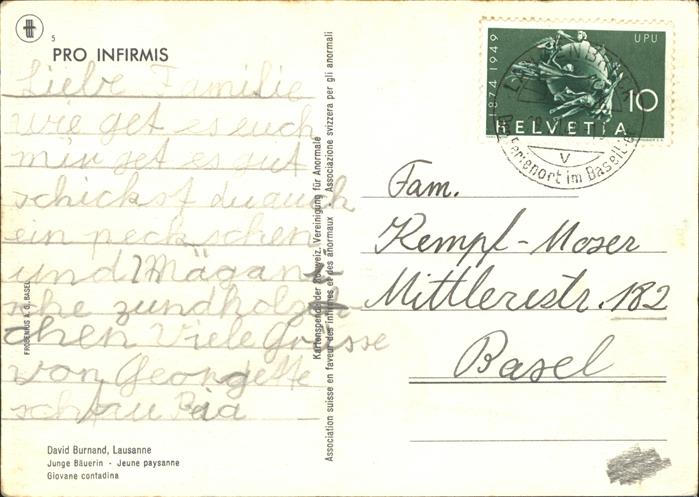 5
PRO INFIRMIS
Liebe Familie
wie get es euch
mir get es gut
schickst du auch
ein peck schen
und
zundholz
chen Viele Grüsse
von Georgette
David Burnand, Lausanne
Junge Bäuerin - Jeune paysanne
Giovane contadina
FROBENIUS A. G. BASEL
Kartenspende der Schweiz. Vereinigung für Anormale
Association suisse en faveur des infirmes et des anormaux Associazione svizzera per gli anormali
1874 1949
UPU
10
HELVETIA
Ferienort im Baselb
Fam.
Kempf-Moser
Mittlerestr. 182
Basel